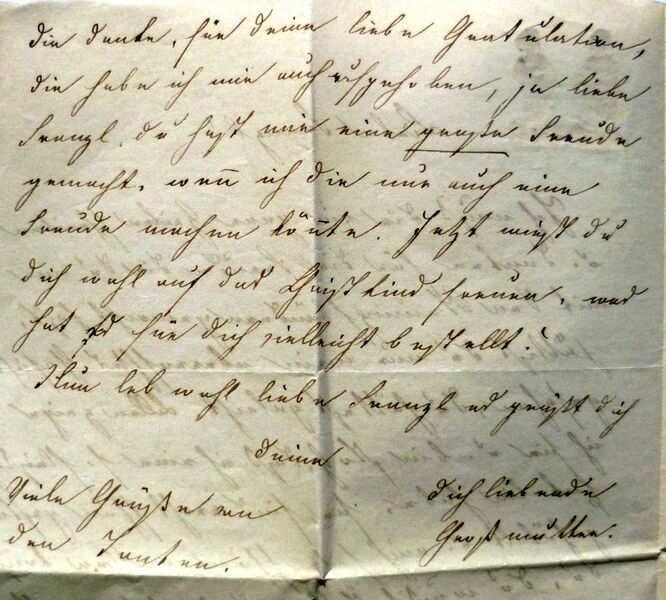 dir danke, für deine liebe Gratulation,
die habe ich mir auch aufgehoben, ja liebe
Franzl, du hast mir eine große Freude
gemacht, wen̅ ich dir nur auch eine
Freude machen kön̅te. Jetzt wirst du
dich wohl auf das Christkind freuen, was
hat es für dich vielleicht bestellt?
Nun leb wohl liebe Franzl es grüßt dich
deine
dich liebende
Großmutter.
Viele Grüße an
den Tanten.